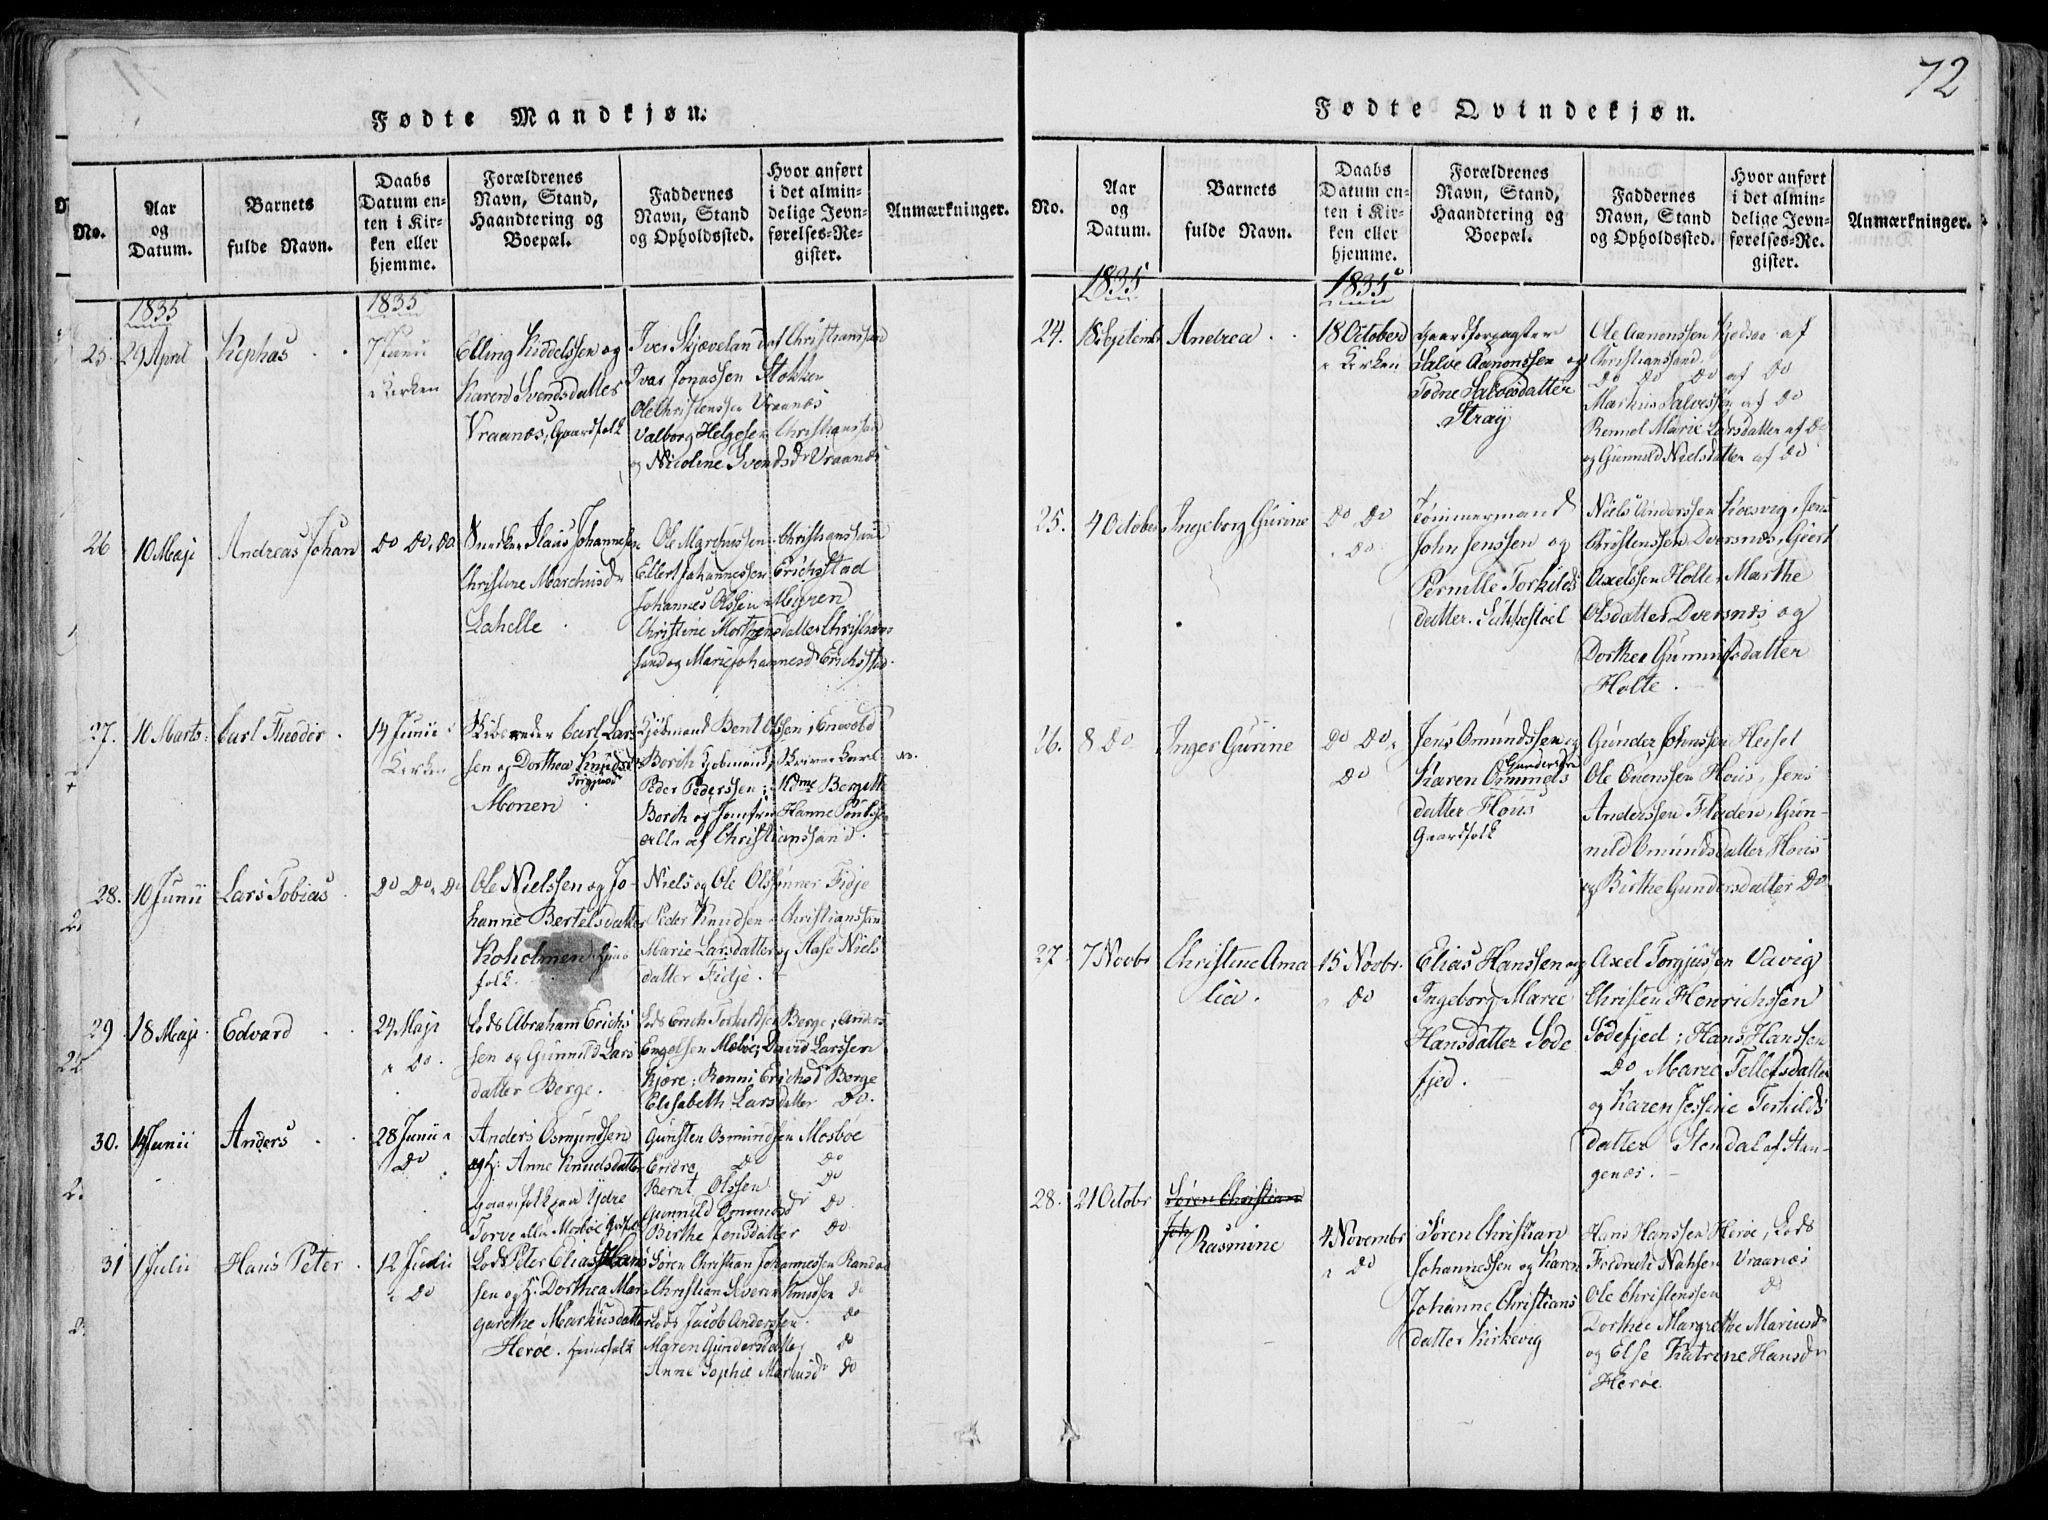 Fødte Mandkjøn.
No.
Aar
og
Datum.
Barnets
fulde Navn.
Daabs
Datum en-
ten i Kir-
ken eller
hjemme.
Forældrenes
Navn, Stand,
Haandtering og
Boepæl.
Faddernes
Navn, Stand
og Opholdssted.
Hvor anført
i det almin-
delige Jevn-
førelses-Re-
gister.
Anmærkninger.
1835
1835
25
29 April
Kephas
7 Junii
i Kirken
Elling Kiddelssen og
Karen Svendsdatter
Vraanæs, Gaardfolk
Iver Skjævelan af Christianssand
Ivar Jonassen Stokken
Ole Christenssen Vraanæs
Valborg Helgesen Christianssand
og Nicoline Svendsdr Vraanæs
26
10 Maji
Andreas Johan
Do Do, Do
Johannesen
Christine Marchusdr
Lahelle
Ole Marchussen Christianssand
Ellert Johannessen Erichstad
Johannes Olssen Meyren
Christine Mortensdatter Christians
sand og Marie Johannesd Erichstad
27.
10 Marts
Carl Theodor
14 Junii
Kirken
Carl Lar
sen og Dorthea Knudsd
Monen
Kjøbmand Bent Olssen, Enevold
Borch Kjøbmand,
Peder Pederssen; Mdme Bergitte
Borch og Jomfru Hanne Poulssen
alle af Christianssand.
28.
10 Junii
Lars Tobias
Do Do, Do
Ole Nielssen og Jo-
hanne Bertelsdatter
Koholmen
folk
Niels og Ole Olssønner Fidje
Peder Knudsen Christianssan
Marie Larsdatter og Aase Niels
datter Fidje.
29
18 Maji
Edvard
24 Maji
i Do.
Lods Abraham Erichs
sen og Gunnild Lars
datter Berge.
Lods Erich Torkildsen Berge; Anders
Engelsen Møboe; David Larssen
Kjære; Ronni Erichsd Berge
Elisabeth Larsdatter Do.
30.
14 Junii
Anders
28 Junii
i Do
Anders Osmundsen
og H. Anne Knudsdatter
Gaardfolk paa Ydre
Torve eller Mosboe
Gunsten Osmundsen Mosboe
Endre Do Do
Bernt Olssen Do
Gunnild Osmundsdr Do
Birthe Jensdatter Do
31
1 Julii
Hans Peter
12 Julii
i Do
Lods Peter Elias Hans
sen og H. Dorthea Mar
garethe Markusdatter
Herøe. Huusfolk
Søren Christian Johannessen Randøe
Christian Severin Knudsen Do
Lods Jacob Anderssen Do
Maren Gundersdatter Do
Anne Sophie Mariusdr Do
72
Fødte Qvindekjøn.
No.
Aar
og
Datum.
Barnets
fulde Navn.
Daabs
Datum en-
ten i Kir-
ken eller
hjemme.
Forældrenes
Navn, Stand,
Haandtering og
Boepæl.
Faddernes
Navn, Stand
og Opholdssted.
Hvor anført
i det almin-
delige Jevn-
førelses-Re-
gister.
Anmærkninger.
1835
1835
24.
18 Septemb
Andrea
18 October
i Kirken
Gaardforpagter
Salve Aanonssen og
Todne Salvesdatter
Straÿ
Ole Aanonssen Kjødsøe af
Christianssand
Do Do Do af Do
Markus Salvessen af Do
Rennel Marie Larsdatter af Do
og Gunnild Nielsdatter af Do
25.
4 October
Ingeborg Gurine
Do Do
i Do
Tømmermand
John Jenssen og
Pernille Torkilds
datter
Niels Anderssen Koesvig, Jens
Christenssen Dversnæs, Geert
Axelssen Holte, Marthe
Olsdatter Dversnæs og
Dorthea Gunnufsdatter
Holte.
26.
8 Do
Inger Gurine
Do Do,
Do
Jens Omundssen og
Karen Gundersdtr
datter Høüs
Gaardfolk
Gunder Johnssen Heisel
Ole Evenssen Hoüs, Jens
Anderssen Fladen, Gun-
nild Omundsdatter Hoüs
og Birthe Gundersdatter Do
27.
7 Novbr
Christine Ama
lia.
15 Novbr.
i Do
Elias Hanssen og
Ingeborg Marie
Hansdatter Søde
fjed.
Axel Torgjussen Vavig
Christen Henrichssen
Sødefjed; Hans Hanssen
Do Marie Tellefsdatter
og Karen Jessine Terkilds
datter Stendal af Slan-
genæs.
28.
21 Octobr
Søren Christian
Joh
Rasmine
4 Novembr
i Do
Søren Christian
Johannessen og Karen
Johanne Christians
datter Kirkevig
Hans Hanssen Herøe, Lods
Fredrick Nahsen Vraanæs
Ole Christenssen Do
Dorthee Margrethe Mariusdr
og Else Katrine Hansdr
Herøe